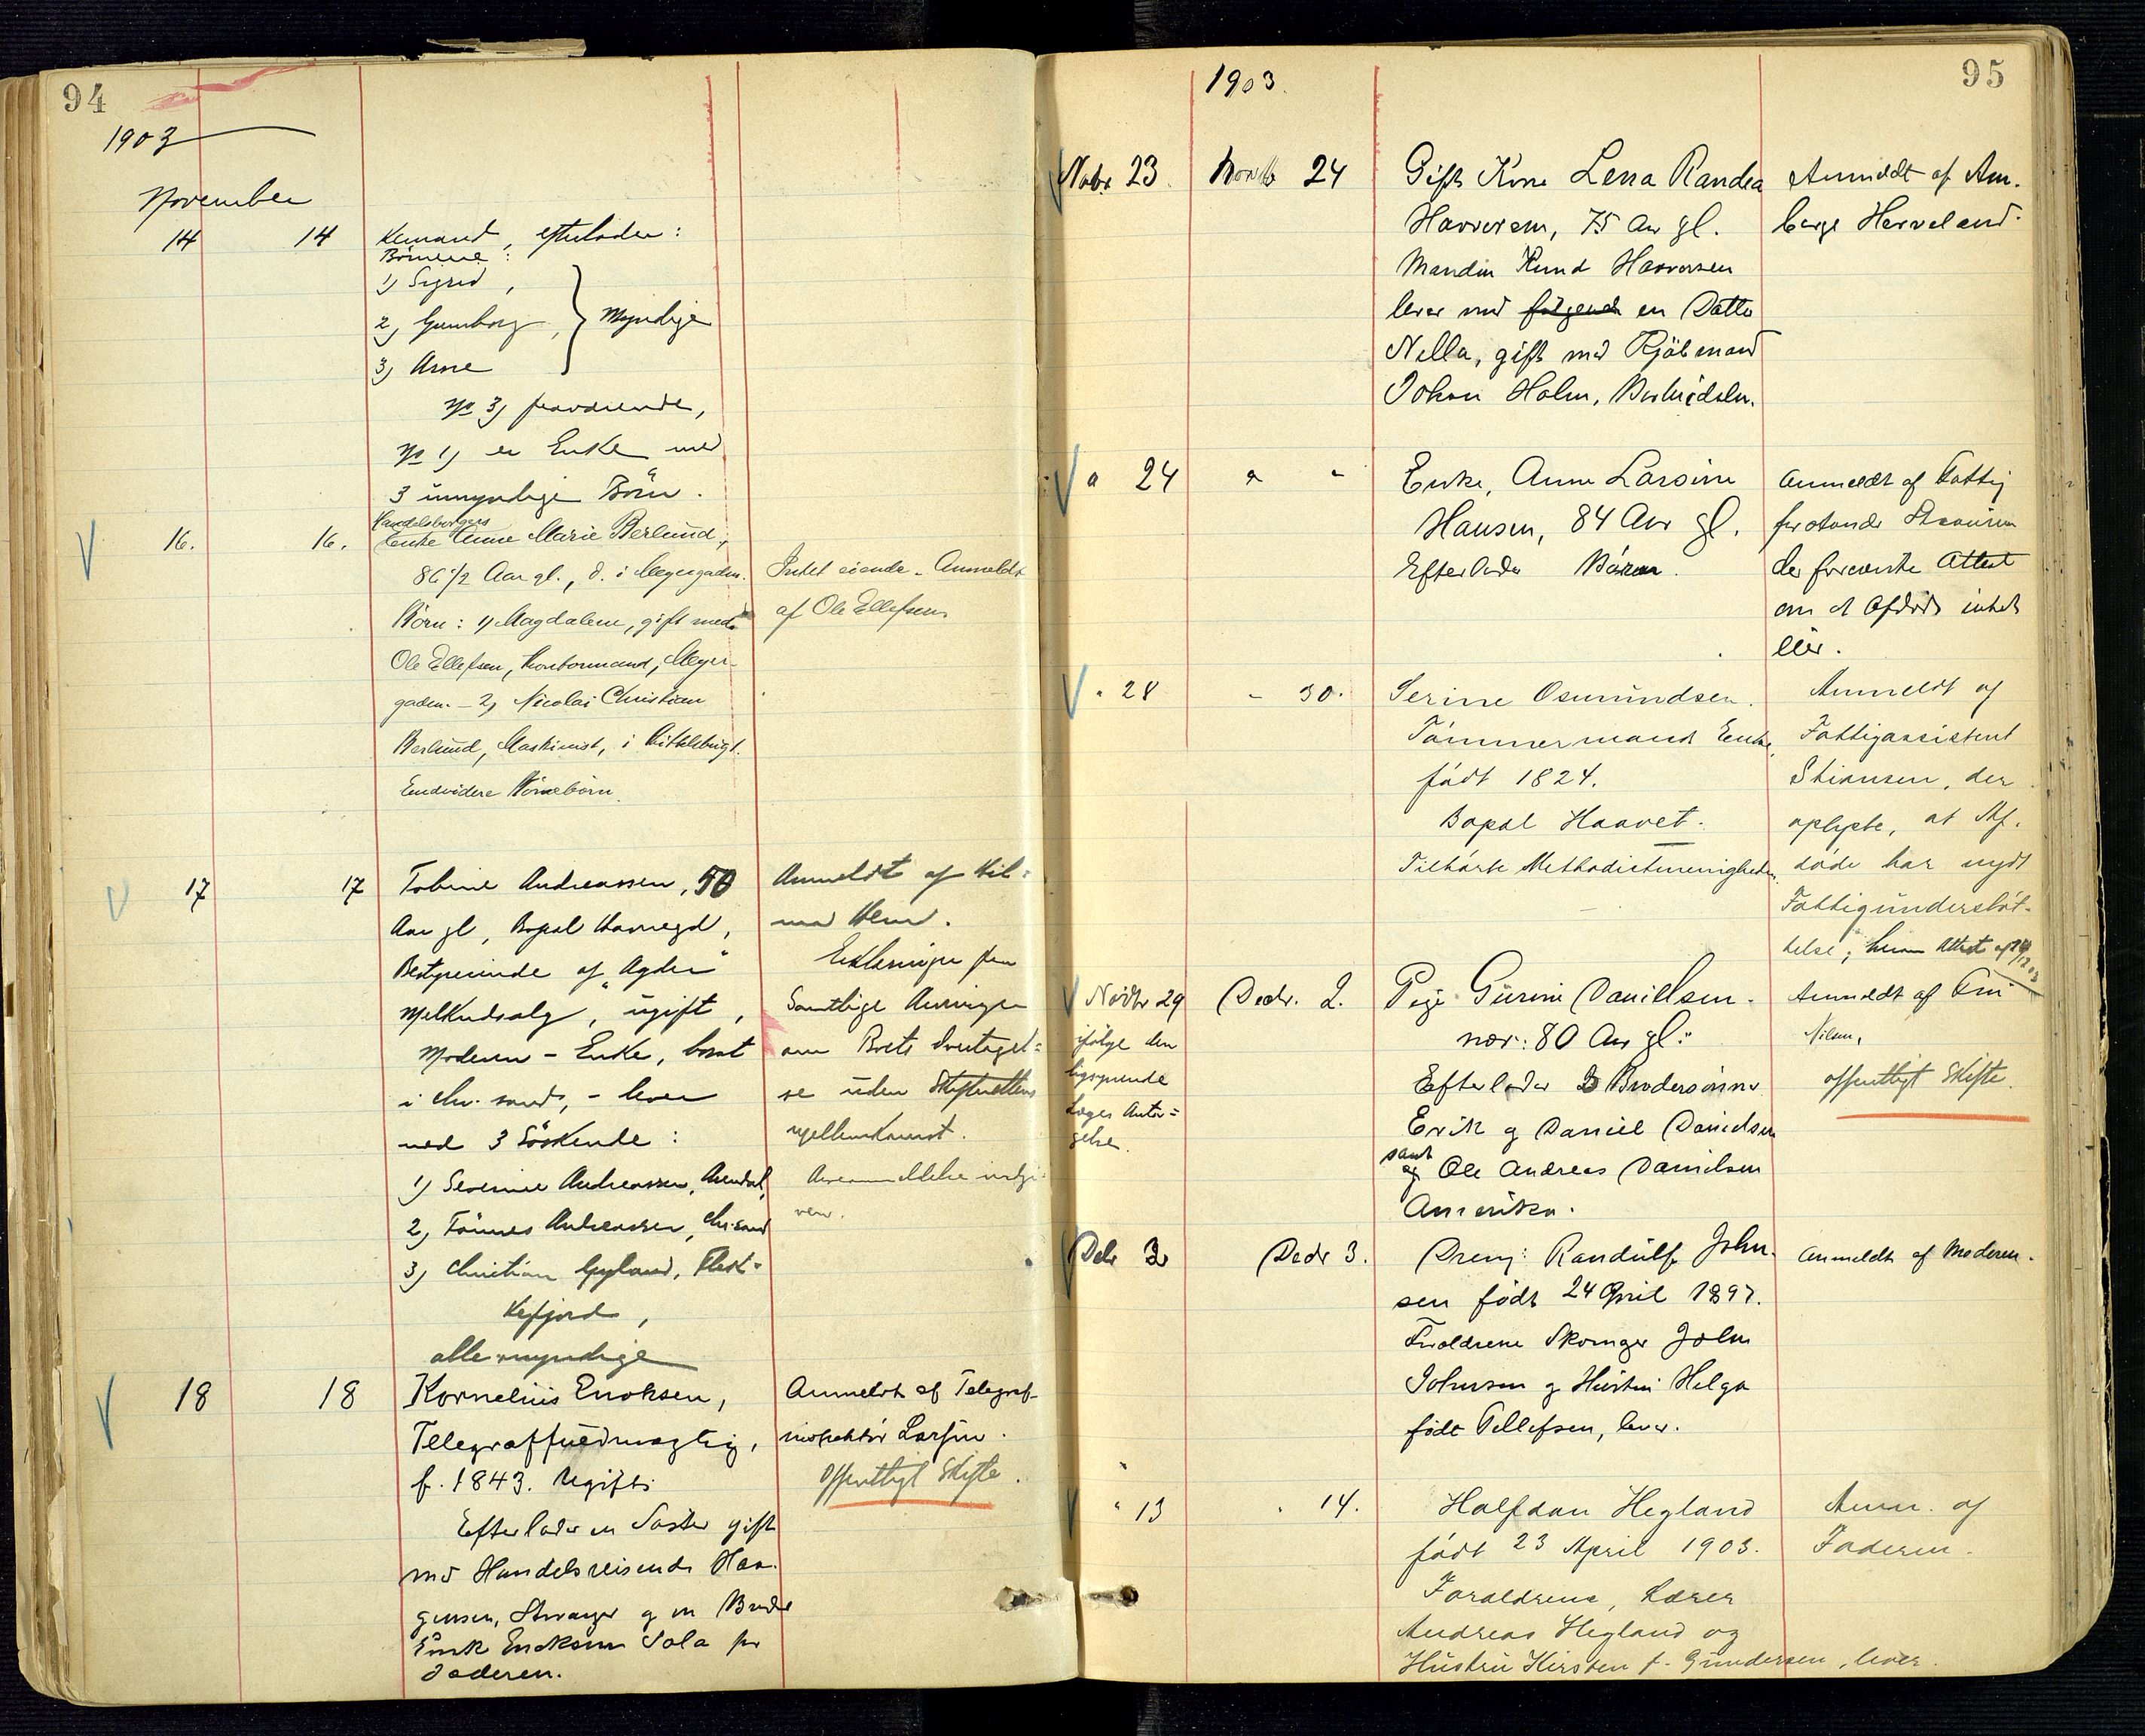 94
1903
November
14 14 Kemand, efterlader:
Børnene:
1) Sigrid,
2) Gunborg, Myndige
3) Arne
No 3) fraværende,
No 1) er Enke med
3 umyndige Børn.
16. 16. Handelsborgers
Enke Anne Marie Berlund,
86 1/2 Aar gl., d. i Meyergaden.
Børn: 1) Magdalene, gift med
Ole Ellefsen, Kontormand, Meyer-
gaden. - 2) Nicolai Christian
Berlund, Maskinist, i
Endvidere Børnebørn.
Intet eiende - Anmeldt
af Ole Ellefsen
17 17 Tobine Andreassen, 50
Aar gl, Bopæl
Bestyrerinde af "Agder"
Melkudsalg, ugift,
Moderen - Enke, bosat
i Chr.sand, - lever
med 3 Söskende:
1) Severine Andreassen, Arendal,
2) Tönnes Andreassen, Chr.sand
3) Christian Gyland, Flek-
kefjord,
alle myndige
Anmeldt af Hil-
ma
Erklæringer fra
Samtlige Arvinger
om Boets Overtagel-
se uden Skifterettens
mellemkomst.
18 18 Kornelius Enoksen,
Telegraffuldmægtig,
f. 1843. Ugift.
Efterlader en Søster gift
med Handelsreisende Haa-
gensen, Stavanger og en Broder
Enok Enoksen Sola paa
Jæderen.
Anmeldt af Telegraf-
inspektør Larsen.
offentligt Skifte.
1903.
95
Novbr 23. Novbr 24 Gift Kone Lena Randea
Haaversen, 75 Aar gl.
Manden Knud Haaversen
lever med følgende en Datter
Nella, gift med Kjøbmand
Johan Holm,
Anmeldt af Am-
berge Herveland.
" 24 " " Enke, Anne Larsine
Hansen, 84 Aar gl.
Efterlader Børn.
Anmeldt af Fattig
forstander
der foreviste Attest
om at Afdøde intet
eier.
" 28 " 30. Serine Osmundsen.
Tømmermands Enke,
født 1824.
Bopæl Haavet.
Tilhørte Methodistmenigheden.
Anmeldt af
Fattigassistent
Stiansen, der
oplyste, at Af-
døde har nydt
Fattigunderstøt-
telse, Attest af
Novbr 29 Decbr. 2. Pige Gurine Danielsen.
ifølge den
ligsynende
Læges Anta-
gelse.
nær: 80 Aar gl:
Efterlader 3 Brodersønner
Erik og Daniel Danielsen
samt
og Ole Andreas Danielsen
Amerika.
Anmeldt af
Nilsen,
offentligt Skifte.
Decbr 2 Decbr 3. Dreng: Randulf John-
sen født 24 April 1897.
Forældrene Skomager John
Johnsen og Hustru Helga
født Tellefsen, lever.
Anmeldt af Moderen.
" 13 " 14. Halfdan Hegland
født 23 April 1903.
Forældrene, Lærer
Andreas Hegland og
Hustru Kirsten f. Gundersen, lever.
Anm. af
Faderen.